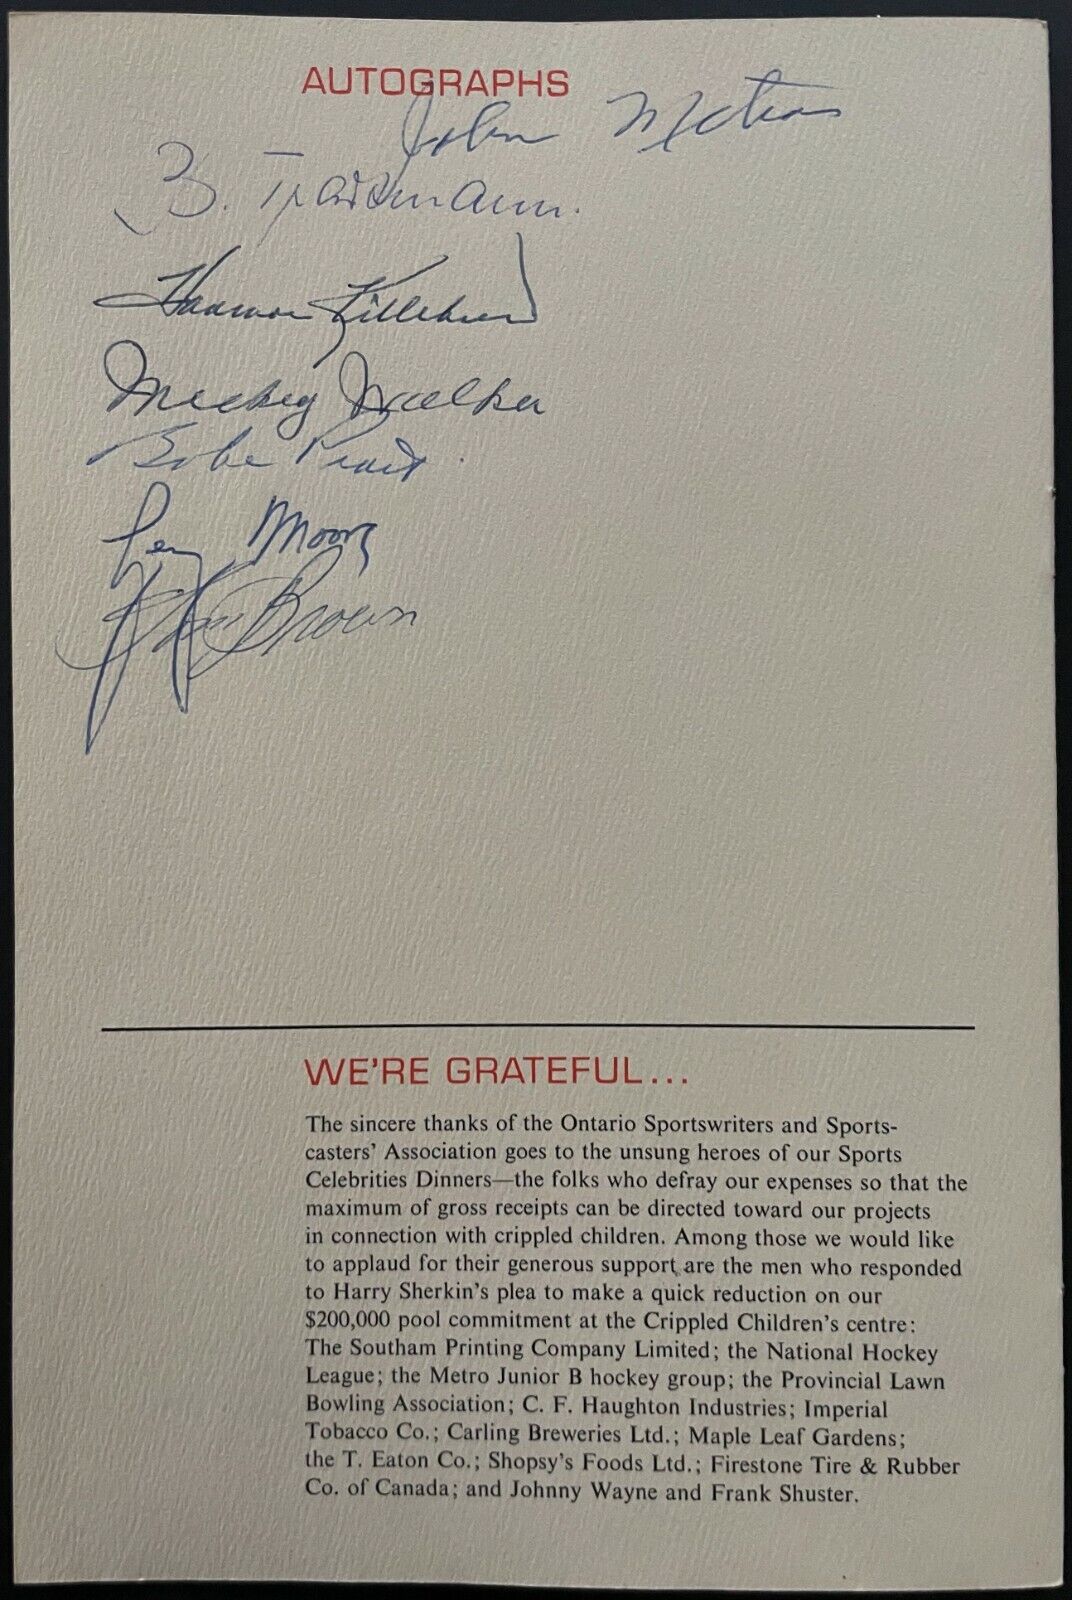 AUTOGRAPHS
John
B. Trautmann.
Harmon Killebrew
Mickey Walker
Babe Pratt.
Moore
Brown
WE'RE GRATEFUL...
The sincere thanks of the Ontario Sportswriters and Sports-
casters' Association goes to the unsung heroes of our Sports
Celebrities Dinners—the folks who defray our expenses so that the
maximum of gross receipts can be directed toward our projects
in connection with crippled children. Among those we would like
to applaud for their generous support, are the men who responded
to Harry Sherkin's plea to make a quick reduction on our
$200,000 pool commitment at the Crippled Children's centre:
The Southam Printing Company Limited; the National Hockey
League; the Metro Junior B hockey group; the Provincial Lawn
Bowling Association; C. F. Haughton Industries; Imperial
Tobacco Co.; Carling Breweries Ltd.; Maple Leaf Gardens;
the T. Eaton Co.; Shopsy's Foods Ltd.; Firestone Tire & Rubber
Co. of Canada; and Johnny Wayne and Frank Shuster.